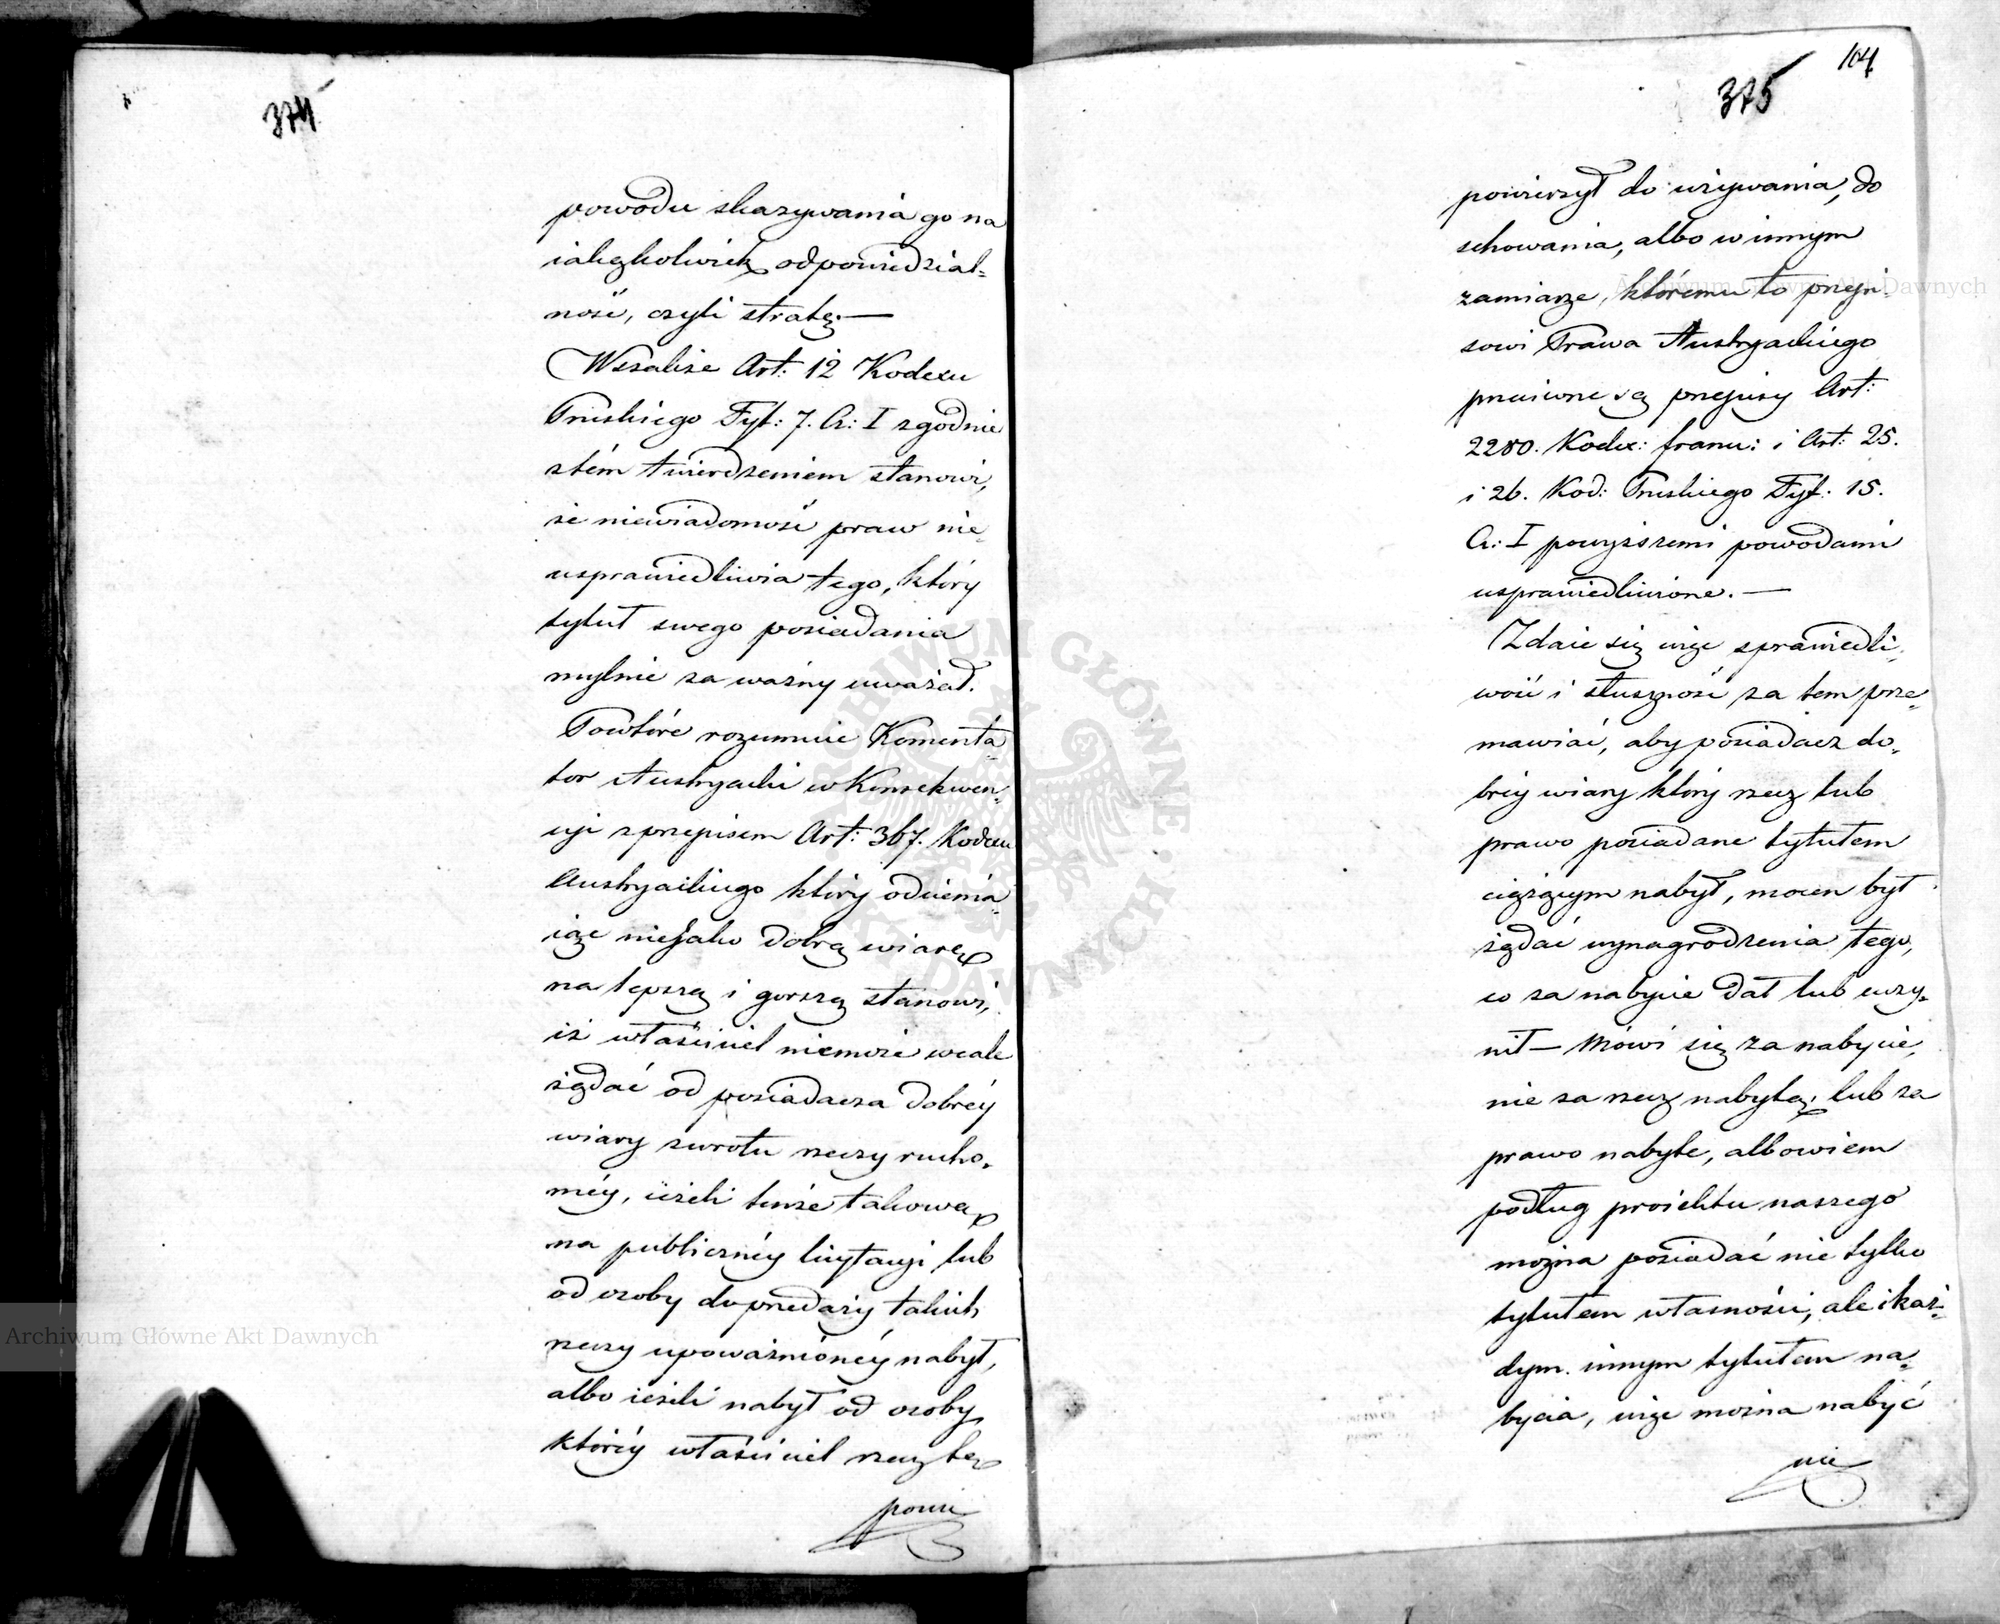 374
powodu skazywania go na
iakąkolwiek odpowiedzial-
ność, czyli stratę.—
Wszakże Art: 12 Kodexu
Pruskiego Tyt: 7. Cz: I zgodnie
ztém twierdzeniem stanowi,
że niewiadomość praw nie
usprawiedliwia tego, który
tytuł swego posiadania
mylnie za ważny uważał.
Powtóre rozumie Komenta-
tor Austryacki w Konsekwen-
cyi z przepisem Art: 367. Kodexu
Austryackiego który odcienia-
iąc niejako dobrą wiarę
na lepszą i gorszą stanowi,
iż właściciel niemoże wcale
żądać od posiadacza dobréy
wiary zwrotu rzeczy rucho-
méy, ieżeli tenże takową
na publicznéy licytacyi lub
od osoby do przedaży takich
rzeczy upoważnionéy nabył,
albo ieżeli nabył od osoby
któréy właściciel rzecz tę
powie
104
375
powierzył do używania, do
schowania, albo w innym
zamiarze, któremu to przepi-
sowi Prawa Austryackiego
przeciwne są przepisy Art:
2280. Kodex: franc: i Art: 25.
i 26. Kod: Pruskiego Tyt: 15.
Cz: I powyższemi powodami
usprawiedliwione.—
Zdaie się więc sprawiedli-
wość i słuszność za tem prze-
mawiać, aby posiadacz do-
bréy wiary który rzecz lub
prawo posiadane tytułem
ciążącym nabył, mocen był
żądać wynagrodzenia tego,
co za nabycie dał lub uczy-
nił— Mówi się za nabycie,
nie za rzecz nabytą, lub za
prawo nabyte, albowiem
podług proiektu naszego
można posiadać nie tylko
tytułem własności, ale i każ-
dym innym tytułem na-
bycia, więc można nabyć
nie
Archiwum Główne Akt Dawnych
Archiwum Główne Akt Dawnych
ARCHIWUM GŁÓWNE AKT DAWNYCH